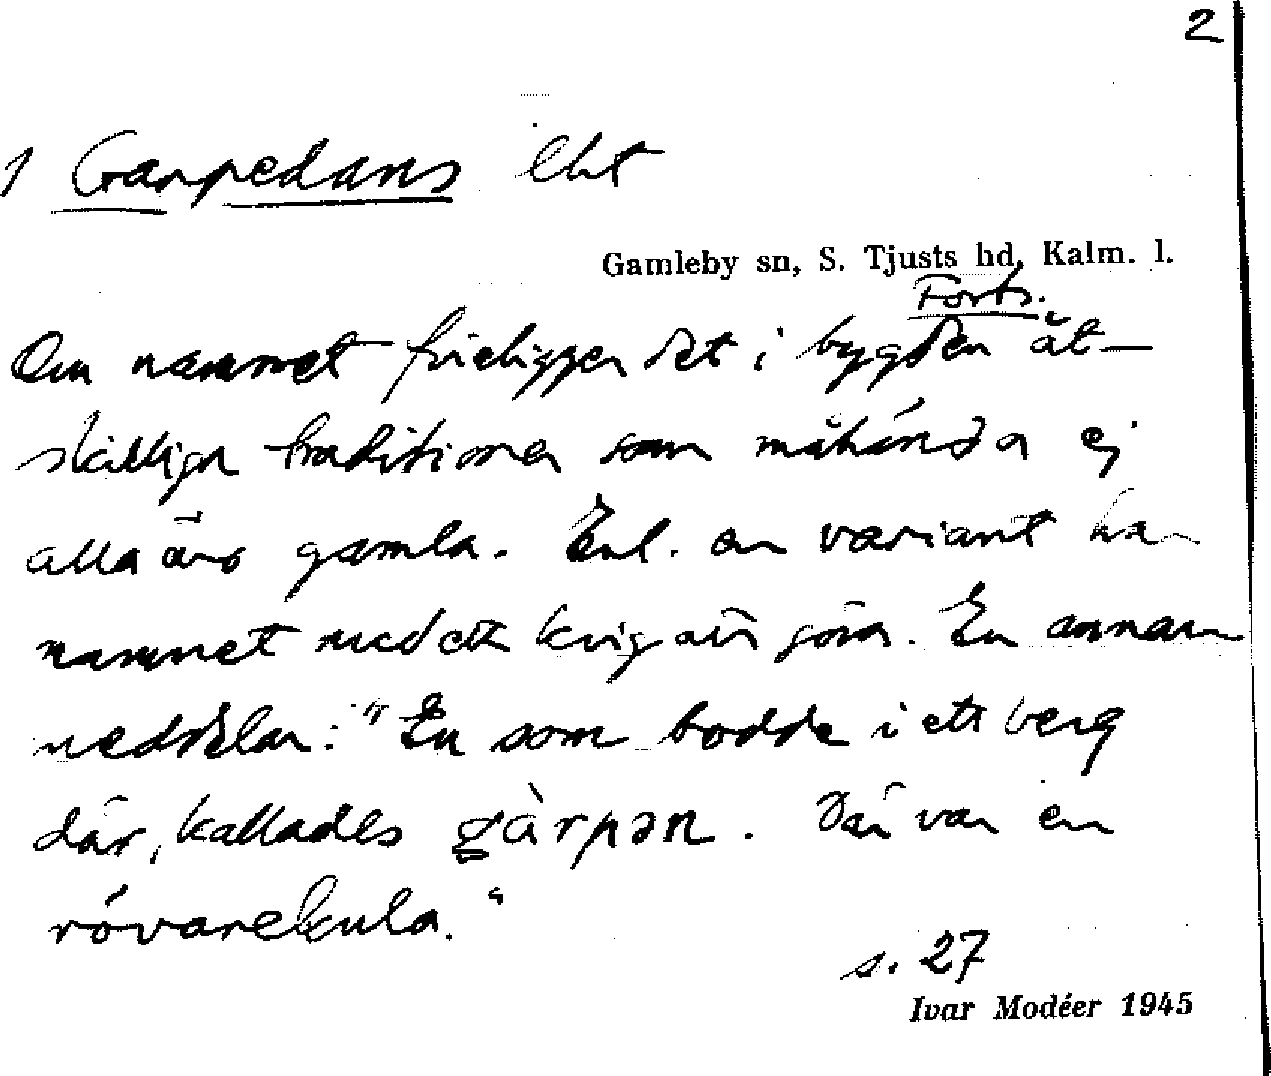 2
1 Garpedans lht
Gamleby sn, S. Tjusts hd, Kalm. l.
Forts.
Om namnet föreligger det i bygden åt-
skilliga traditioner som måhända ej
alla äro gamla. Enl. en variant har
namnet med ett krig att göra. En annan
meddelar: "En som bodde i ett berg
där, kallades gàrpən. Där var en
rövarekula."
s. 27
Ivar Modéer 1945